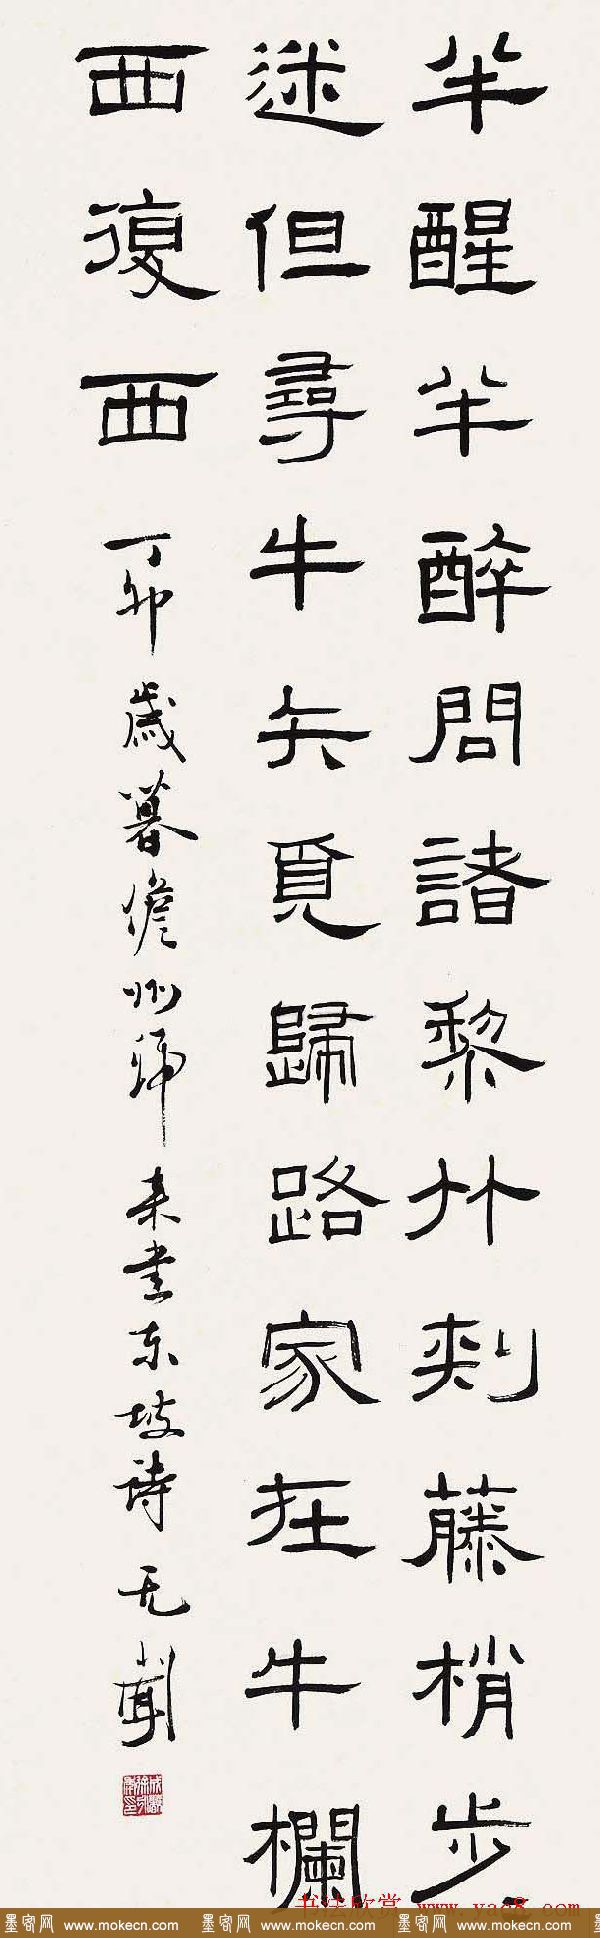 半醒半醉問諸黎竹刺藤梢步
迷但尋牛矢覓歸路家在牛欄
西復西 丁卯歲暮儋州歸来書東坡詩 无聞
书法欣赏 www.yac8.com
墨客网 www.mokecn.com 墨客网 www.mokecn.com 墨客网 www.mokecn.com